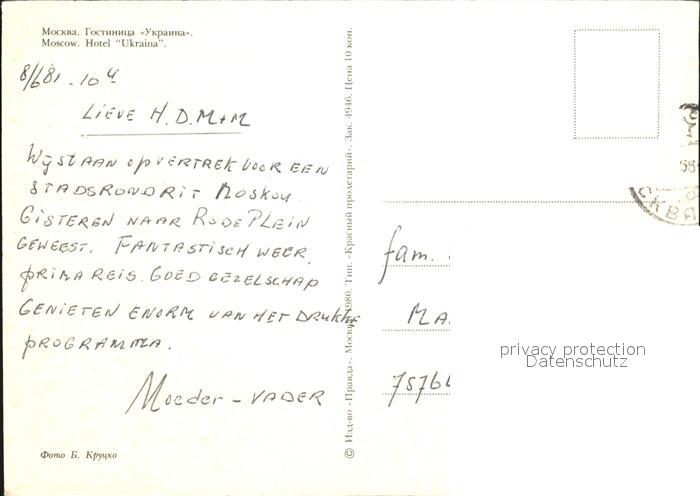 Москва. Гостиница «Украина».
Moscow. Hotel "Ukraina".
8/6 81 - 10 u
LIEVE H. D. M + M
WIJ STAAN OP VERTREK VOOR EEN
STADSRONDRIT MOSKOU
GISTEREN NAAR RODE PLEIN
GEWEEST. FANTASTISCH WEER,
PRIMA REIS. GOED GEZELSCHAP
GENIETEN ENORM VAN HET DRUKKE
PROGRAMMA.
Moeder - VADER
Фото Б. Круцко
© Изд-во «Правда». Москва. 1980. Тип. «Красный пролетарий». Зак. 4946. Цена 10 коп.
СКВА
fam.
MA
7576
privacy protection
Datenschutz